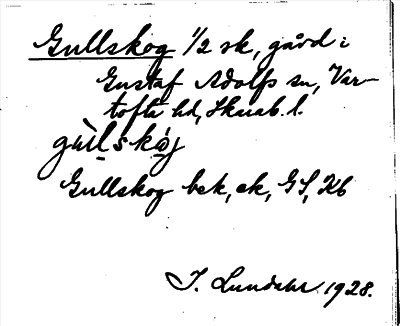 Gullskog 1/2 sk, gård i
Gustaf Adolfs sn, Var-
tofta hd, Skarab. l.
gùlskòj
Gullskog bsk, ek, GS, Kb
J. Lundahl 1928.